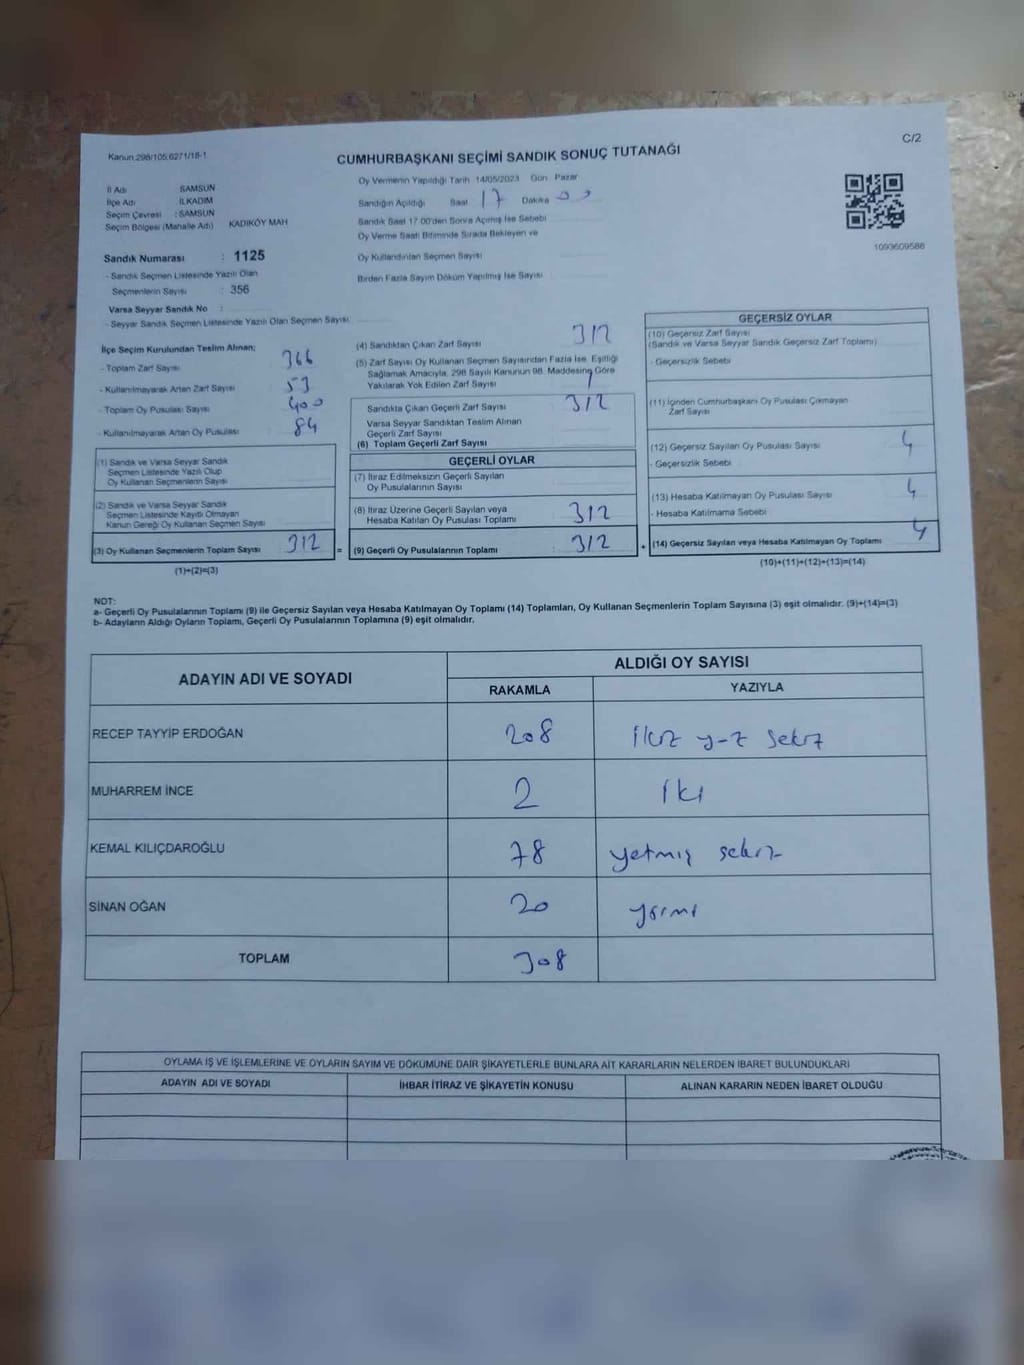 Kanun 298/105;6271/18-1
C/2
CUMHURBAŞKANI SEÇİMİ SANDIK SONUÇ TUTANAĞI
İl Adı SAMSUN
İlçe Adı İLKADIM
Seçim Çevresi : SAMSUN
Seçim Bölgesi (Mahalle Adı) KADIKÖY MAH
Sandık Numarası : 1125
- Sandık Seçmen Listesinde Yazılı Olan
Seçmenlerin Sayısı : 356
Varsa Seyyar Sandık No :
- Seyyar Sandık Seçmen Listesinde Yazılı Olan Seçmen Sayısı
Oy Vermenin Yapıldığı Tarih 14/05/2023 Gün Pazar
Sandığın Açıldığı Saat 17 Dakika 00
Sandık Saat 17.00'den Sonra Açılmış İse Sebebi
Oy Verme Saati Bitiminde Sırada Bekleyen ve
Oy Kullandırılan Seçmen Sayısı
Birden Fazla Sayım Döküm Yapılmış İse Sayısı
1093609588
İlçe Seçim Kurulundan Teslim Alınan;
- Toplam Zarf Sayısı 366
- Kullanılmayarak Artan Zarf Sayısı 53
- Toplam Oy Pusulası Sayısı 400
- Kullanılmayarak Artan Oy Pusulası 84
(1) Sandık ve Varsa Seyyar Sandık
Seçmen Listesinde Yazılı Olup
Oy Kullanan Seçmenlerin Sayısı
(2) Sandık ve Varsa Seyyar Sandık
Seçmen Listesinde Kayıtlı Olmayan
Kanun Gereği Oy Kullanan Seçmen Sayısı
(3) Oy Kullanan Seçmenlerin Toplam Sayısı 312 =
(1)+(2)=(3)
(4) Sandıktan Çıkan Zarf Sayısı 312
(5) Zarf Sayısı Oy Kullanan Seçmen Sayısından Fazla İse, Eşitliği
Sağlamak Amacıyla, 298 Sayılı Kanunun 98. Maddesine Göre
Yakılarak Yok Edilen Zarf Sayısı
Sandıkta Çıkan Geçerli Zarf Sayısı 312
Varsa Seyyar Sandıktan Teslim Alınan
Geçerli Zarf Sayısı
(6) Toplam Geçerli Zarf Sayısı
GEÇERLİ OYLAR
(7) İtiraz Edilmeksizin Geçerli Sayılan
Oy Pusulalarının Sayısı
(8) İtiraz Üzerine Geçerli Sayılan veya
Hesaba Katılan Oy Pusulası Toplamı 312
(9) Geçerli Oy Pusulalarının Toplamı 312 +
GEÇERSİZ OYLAR
(10) Geçersiz Zarf Sayısı
(Sandık ve Varsa Seyyar Sandık Geçersiz Zarf Toplamı)
- Geçersizlik Sebebi
(11) İçinden Cumhurbaşkanı Oy Pusulası Çıkmayan
Zarf Sayısı
(12) Geçersiz Sayılan Oy Pusulası Sayısı 4
- Geçersizlik Sebebi
(13) Hesaba Katılmayan Oy Pusulası Sayısı 4
- Hesaba Katılmama Sebebi
(14) Geçersiz Sayılan veya Hesaba Katılmayan Oy Toplamı 4
(10)+(11)+(12)+(13)=(14)
NOT:
a- Geçerli Oy Pusulalarının Toplamı (9) ile Geçersiz Sayılan veya Hesaba Katılmayan Oy Toplamı (14) Toplamları, Oy Kullanan Seçmenlerin Toplam Sayısına (3) eşit olmalıdır. (9)+(14)=(3)
b- Adayların Aldığı Oyların Toplamı, Geçerli Oy Pusulalarının Toplamına (9) eşit olmalıdır.
ADAYIN ADI VE SOYADI ALDIĞI OY SAYISI
RAKAMLA YAZIYLA
RECEP TAYYİP ERDOĞAN 208
MUHARREM İNCE 2 iki
KEMAL KILIÇDAROĞLU 78 yetmiş sekiz
SİNAN OĞAN 20 yirmi
TOPLAM 308
OYLAMA İŞ VE İŞLEMLERİNE VE OYLARIN SAYIM VE DÖKÜMÜNE DAİR ŞİKAYETLERLE BUNLARA AİT KARARLARIN NELERDEN İBARET BULUNDUKLARI
ADAYIN ADI VE SOYADI İHBAR İTİRAZ VE ŞİKAYETİN KONUSU ALINAN KARARIN NEDEN İBARET OLDUĞU